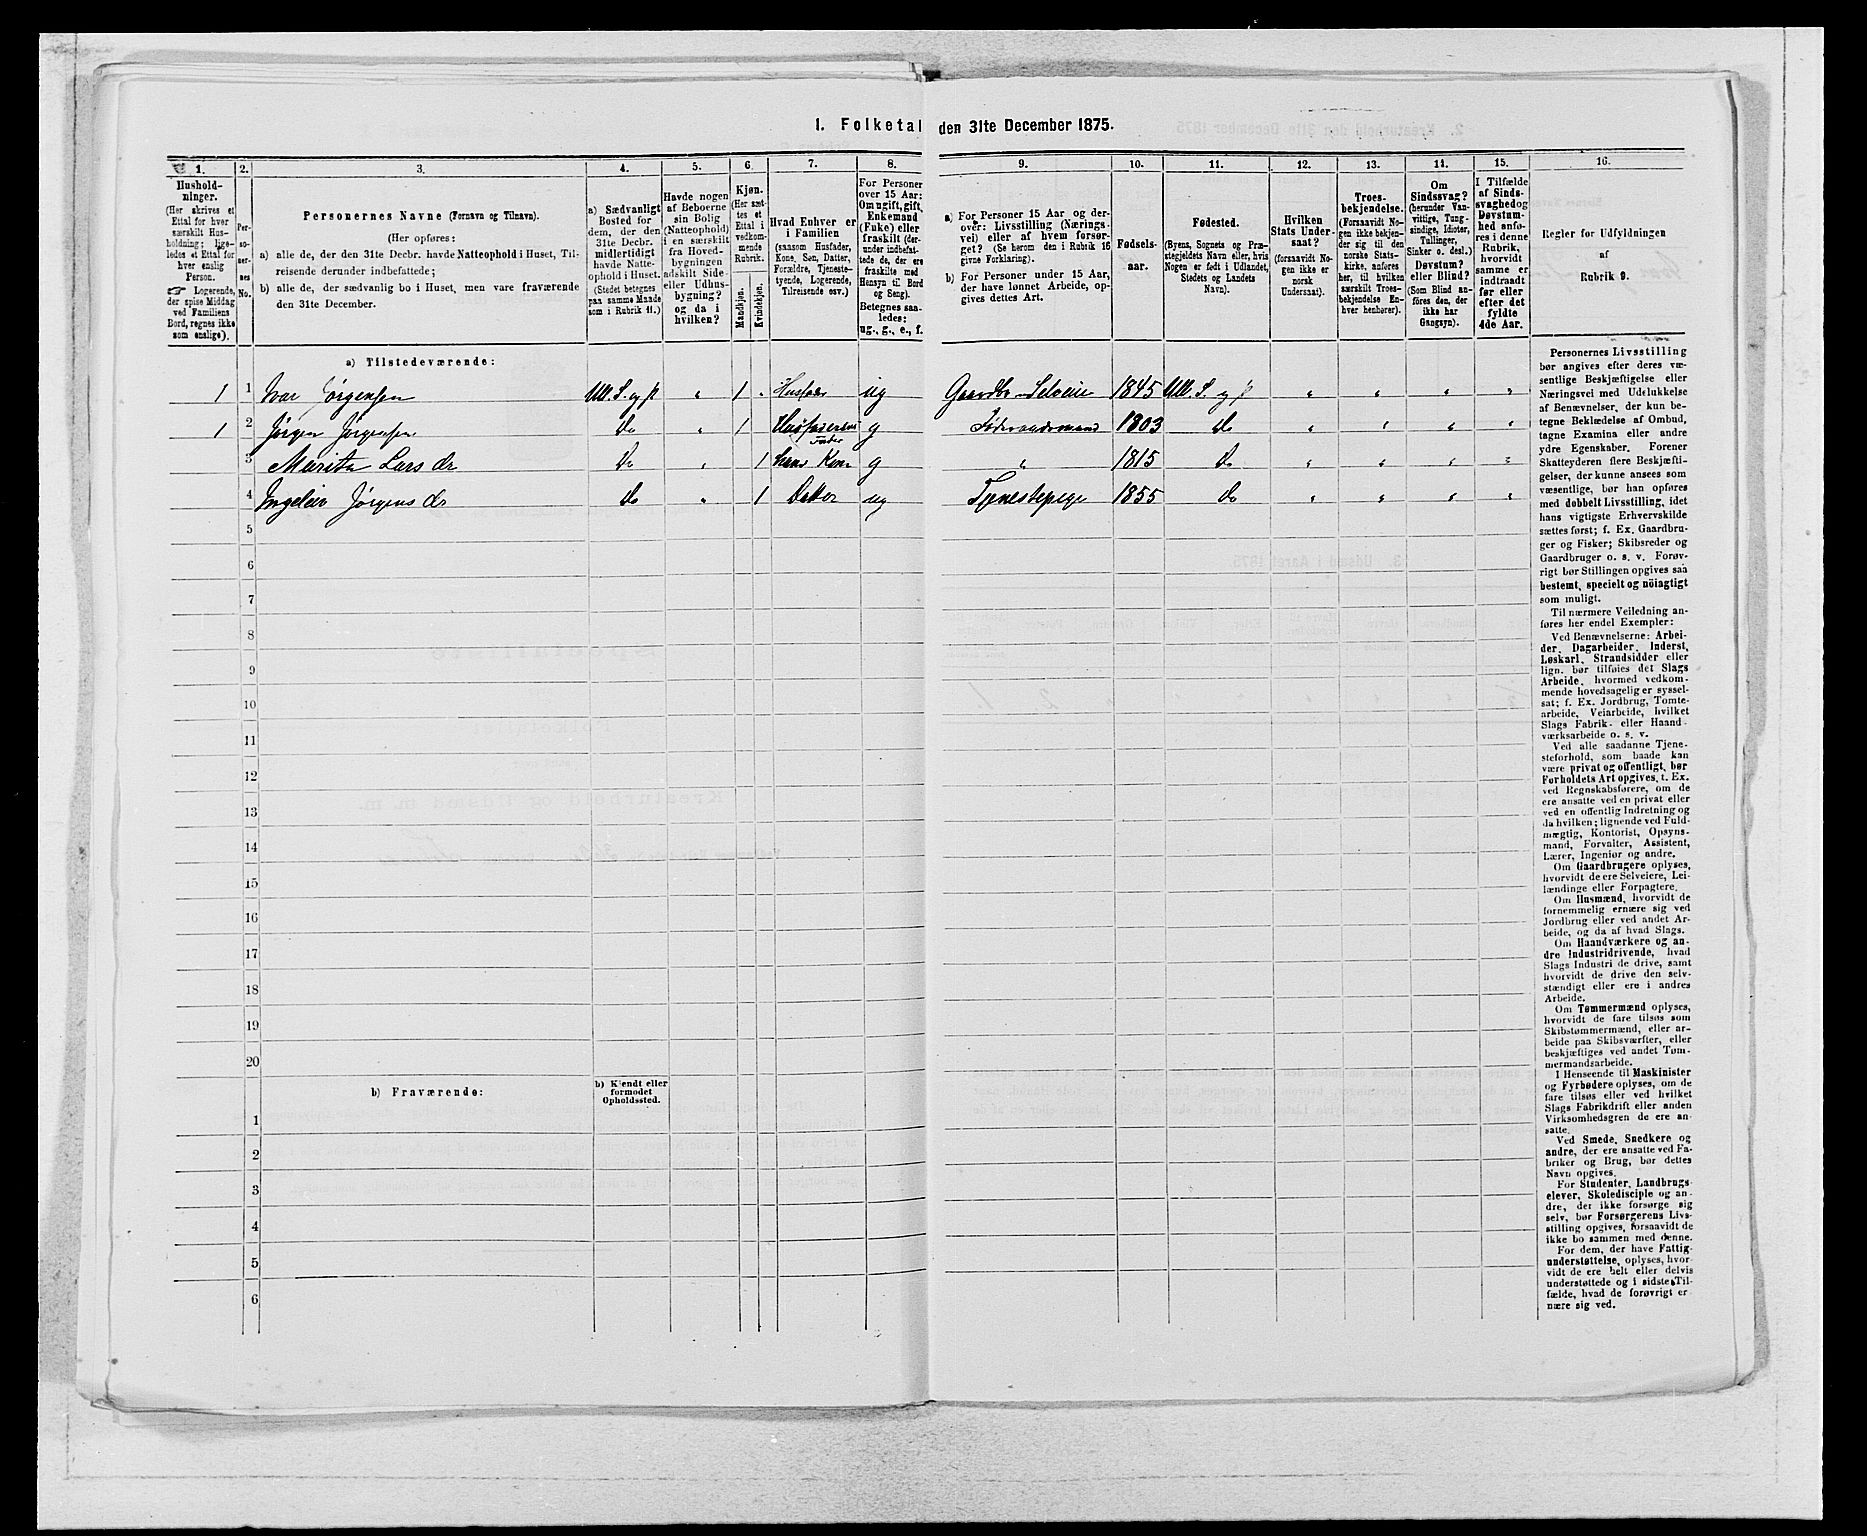 1. Folketal den 31te December 1875.
1. 2. 3. 4. 5. 6. 7. 8. 9. 10. 11. 12. 13. 14. 15. 16.
Hushold-
ninger.
(Her skrives et
Ettal for hver
særskilt Hus-
holdning; lige-
ledes et Ettal for
hver enslig
Person.
☞ Logerende,
der spise Middag
ved Familiens
Bord, regnes ikke
som enslige).
Per-
so-
ner-
nes
No.
Personernes Navne (Fornavn og Tilnavn).
(Her opføres:
a) alle de, der den 31te Decbr. havde Natteophold i Huset, Til-
reisende derunder indbefattede;
b) alle de, der sædvanlig bo i Huset, men vare fraværende
den 31te December.
a) Sædvanligt
Bosted for
dem, der den
31te Decbr.
midlertidigt
havde Natte-
ophold i Huset.
(Stedet betegnes
paa samme Maade
som i Rubrik 11.)
Havde nogen
af Beboerne
sin Bolig
(Natteophold)
i en særskilt
fra Hoved-
bygningen
adskilt Side-
eller Udhus-
bygning?
og da i
hvilken?
Kjøn.
(Her sæt-
tes et
Ettal i
vedkom-
mende
Rubrik.
Mandkjøn.
Kvindekjøn.
Hvad Enhver er
i Familien
(saasom Husfader,
Kone, Søn, Datter,
Forældre, Tjeneste-
tyende, Logerende,
Tilreisende osv.)
For Personer
over 15 Aar:
Om ugift, gift,
Enkemand
(Enke) eller
fraskilt (der-
under indbefat-
tede de, der ere
fraskilte med
Hensyn til Bord
og Seng).
Betegnes saa-
ledes:
ug., g., e., f.
a) For Personer 15 Aar og der-
over: Livsstilling (Nærings-
vei) eller af hvem forsør-
get? (Se herom den i Rubrik 16
givne Forklaring).
b) For Personer under 15 Aar,
der have lønnet Arbeide, op-
gives dettes Art.
Fødsels-
aar.
Fødested.
(Byens, Sognets og Præ-
stegjeldets Navn eller, hvis
Nogen er født i Udlandet,
Stedets og Landets
Navn).
Hvilken
Stats Under-
saat?
(forsaavidt No-
gen ikke er
norsk
Undersaat).
Troes-
bekjendelse.
(Forsaavidt No-
gen ikke bekjen-
der sig til den
norske Stats-
kirke, anføres
her, til hvilken
særskilt Troes-
bekjendelse En-
hver henhører).
Om
Sindssvag?
(herunder Van-
vittige, Tung-
sindige, Idioter,
Tullinger,
Sinker o. desl.).
Døvstum?
eller Blind?
(Som Blind an-
føres den, der
ikke har
Gangsyn).
I Tilfælde
af Sinds-
svaghed og
Døvstum-
hed anfø-
res i denne
Rubrik,
hvorvidt
samme er
indtraadt
før eller
efter det
fyldte
4de Aar.
Regler for Udfyldningen
af
Rubrik 9.
a) Tilstedeværende:
1 1 Ivar Jørgensen Ull. S. og p " 1 " Husfader ug Gaardbr. Selveier 1845 Ull. S. og p " " " "
1 2 Jørgen Jørgensen Do " 1 Husfaderens Fader g Føderaadsmand 1803 Do " " " "
3 Marita Lars dr Do " 1 hans Kone g " 1815 Do " " " "
4 Ingeleiv Jørgens dr Do " 1 Datter ug Tjenestepige 1855 Do " " " "
5
6
7
8
9
10
11
12
13
14
15
16
17
18
19
20
b) Fraværende:
b) Kjendt eller
formodet
Opholdssted.
1
2
3
4
5
6
Personernes Livsstilling
bør angives efter deres væ-
sentlige Beskjæftigelse eller
Næringsvei med Udelukkelse
af Benævnelser, der kun be-
tegne Beklædelse af Ombud,
tagne Examina eller andre
ydre Egenskaber. Forener
Skatteyderen flere Beskjæfti-
gelser, der kunne ansees som
væsentlige, bør han opføres
med dobbelt Livsstilling, idet
hans vigtigste Erhvervskilde
sættes først; f. Ex. Gaardbru-
ger og Fisker; Skibsreder og
Gaardbruger o. s. v. Forøv-
rigt bør Stillingen opgives saa
bestemt, specielt og nöiagtigt
som muligt.
Til nærmere Veiledning an-
føres her endel Exempler:
Ved Benævnelserne: Arbei-
der, Dagarbeider, Inderst,
Løskarl, Strandsidder eller
lign. bør tilføies det Slags
Arbeide, hvormed vedkom-
mende hovedsagelig er syssel-
sat; f. Ex. Jordbrug, Tomte-
arbeide, Veiarbeide, hvilket
Slags Fabrik- eller Haand-
værksarbeide o. s. v.
Ved alle saadanne Tjene-
steforhold, som baade kan
være privat og offentligt, bør
Forholdets Art opgives, t. Ex.
ved Regnskabsførere, om de
ere ansatte ved en privat eller
ved en offentlig Indretning og
da hvilken; lignende ved Fuld-
mægtig, Kontorist, Opsyns-
mand, Forvalter, Assistent,
Lærer, Ingeniør og andre.
Om Gaardbrugere oplyses,
hvorvidt de ere Selveiere, Lei-
lændinge eller Forpagtere.
Om Husmænd, hvorvidt de
fornemmelig ernære sig ved
Jordbrug eller ved andet Ar-
beide, og da af hvad Slags.
Om Haandværkere og an-
dre Industridrivende, hvad
Slags Industri de drive, samt
hvorvidt de drive den selv-
stændigt eller ere i andres
Arbeide.
Om Tømmermænd oplyses,
hvorvidt de fare tilsøs som
Skibstømmermænd, eller ar-
beide paa Skibsværfter, eller
beskjæftiges ved andet Tøm-
mermandsarbeide.
I Henseende til Maskinister
og Fyrbødere oplyses, om de
fare tilsøs eller ved hvilket
Slags Fabrikdrift eller anden
Virksomhedsgren de ere an-
satte.
Ved Smede, Snedkere og
andre, der ere ansatte ved Fa-
briker og Brug, bør dettes
Navn opgives.
For Studenter, Landbrugs-
elever, Skoledisciple og an-
dre, der ikke forsørge sig
selv, bør Forsørgerens Livs-
stilling opgives, forsaavidt de
ikke bo sammen med denne.
For dem, der have Fattig-
understøttelse, oplyses, hvor-
vidt de ere helt eller delvis
understøttede og i sidste Til-
fælde, hvad de forøvrigt er-
nære sig ved.